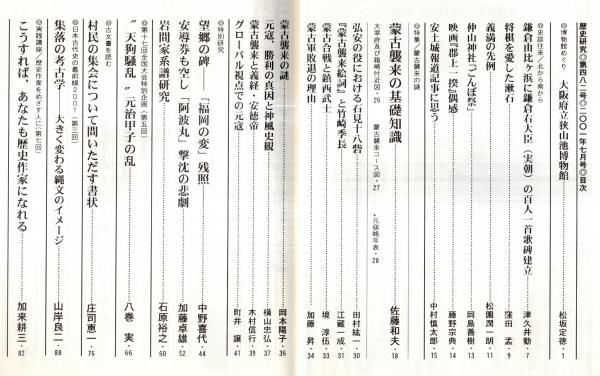 歴史研究◎第四八二号◎二〇〇一年七月号◎目次
◎博物館めぐり
大阪府立狭山池博物館 松坂定徳・1
◎史談往来／北から南から
鎌倉由比ヶ浜に鎌倉右大臣（実朝）の百人一首歌碑建立 津久井勤・7
将棋を愛した漱石 窪田 孟・9
義満の先例 松園潤一朗・11
仲山神社「ごんぼ祭」 岡島善樹・13
映画『郡上一揆』偶感 藤野宗典・14
安土城報道記事に思う 中村慎太郎・15
◎特集／蒙古襲来の謎
蒙古襲来の基礎知識 佐藤和夫・18
大宰府及び筥崎付近図・26 蒙古襲来コース図・27 ・元寇略年表・28
弘安の役における石見十八砦 田村紘一・30
『蒙古襲来絵詞』と竹崎季長 江蔵一成・31
蒙古合戦と鎮西武士 境 淳伍・33
蒙古軍敗退の理由 加藤 昇・34
蒙古襲来の謎 岡本陽子・36
元寇、勝利の真因と神風史観 横山忠弘・37
蒙古襲来と義経・安徳帝 木村信行・39
グローバル視点での元寇 町井 譲・41
◎特別研究
望郷の碑 「福岡の変」残照 中野喜代・44
安導券も空し「阿波丸」撃沈の悲劇 加藤卓雄・52
岩間家系譜研究 石原裕之・60
◎第十七回全国大会特別企画（第五回）
〝天狗騒乱〟元治甲子の乱 八巻 実・66
◎古文書を読む
村民の集会について問いただす書状 庄司恵一・76
◎日本古代史の最前線2001（第三回）
集落の考古学 大きく変わる縄文のイメージ 山岸良二・88
◎実践講座／歴史作家をめざす人に（第七回）
こうすれば、あなたも歴史作家になれる 加来耕三・82